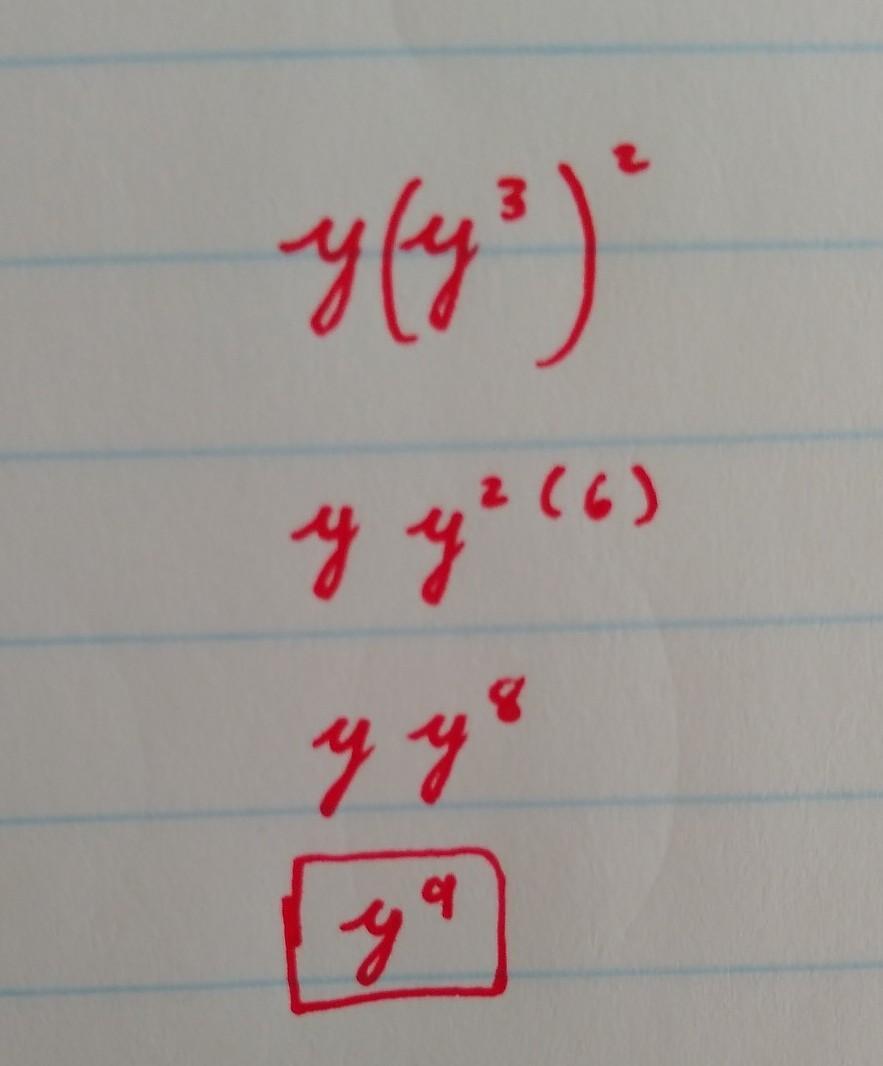 y(y³)²
y y²⁽⁶⁾
y y⁸
y⁹